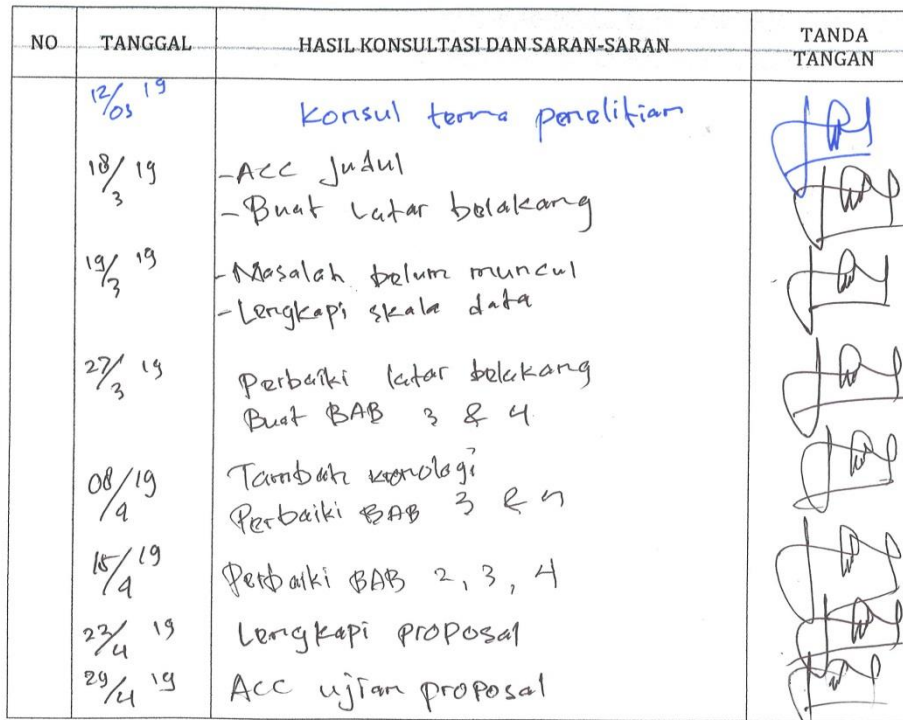 NO TANGGAL HASIL KONSULTASI DAN SARAN-SARAN TANDA TANGAN
12/03 19 Konsul tema penelitian
18/3 19 -ACC Judul
-Buat Latar belakang
19/3 19 -Masalah belum muncul
-Lengkapi skala data
27/3 19 Perbaiki latar belakang
Buat BAB 3 & 4
08/4 19 Tambah kronologi
Perbaiki BAB 3 & 4
15/4 19 Perbaiki BAB 2, 3, 4
23/4 19 Lengkapi proposal
29/4 19 ACC ujian proposal